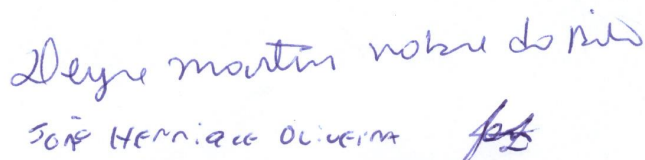 Deyse Martins Nobre do
JOSÉ HENRIQUE OLIVEIRA